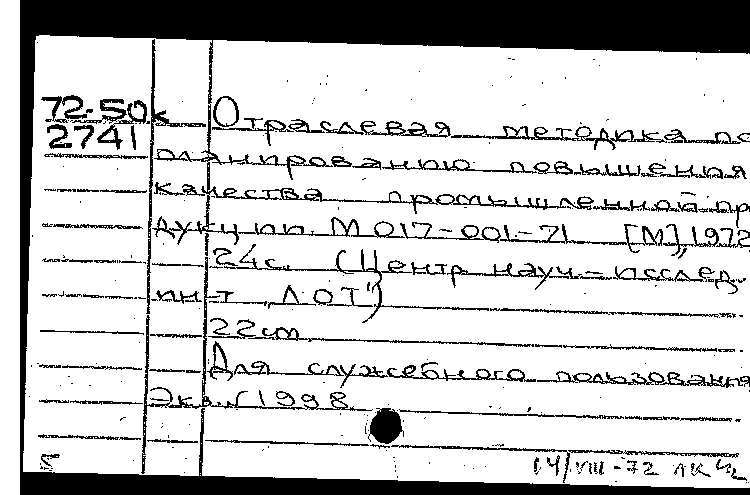 72-50к
2741
Отраслевая методика по
планированию повышения
качества промышленной пр
дукции. М 017-001-71 [М], 1972
24с. (Центр науч-исслед.
ин-т "ЛОТ")
22см.
Для служебного пользования
Экз. N 1998
5
14/VIII-72 ЛК